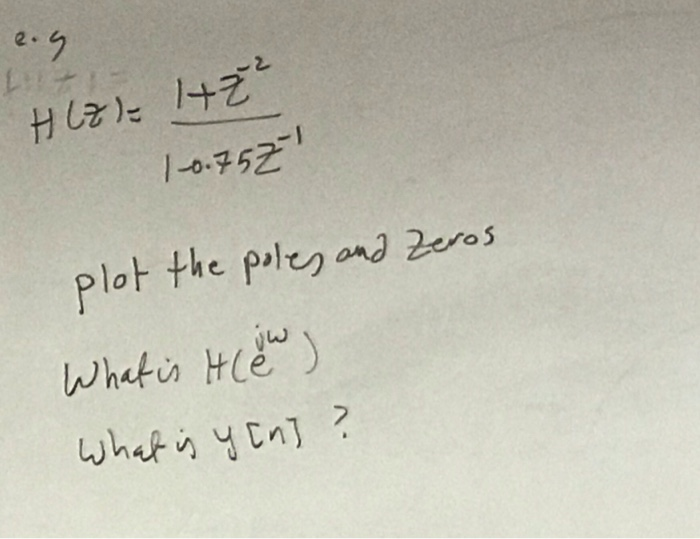 e.g
H(z) = 1+z^-2 / 1-0.75z^-1
plot the poles and zeros
What is H(e^jw)
What is y[n] ?